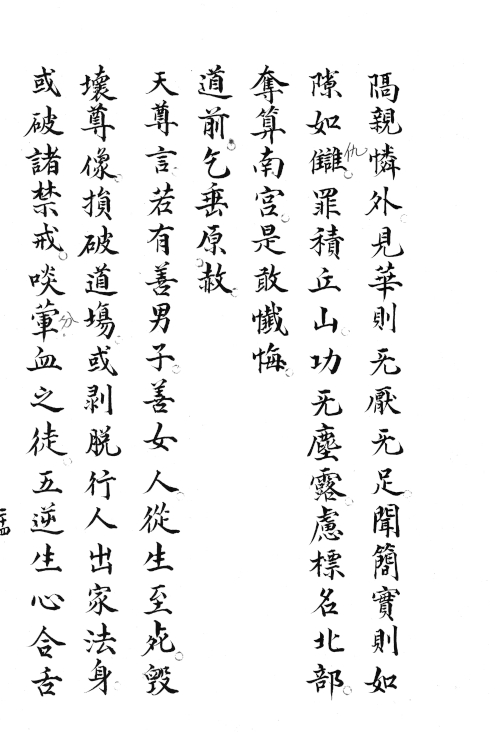 隔親憐外見華則无厭无足聞簡實則如
隙如讎罪積丘山功无塵露慮標名北部
仇
奪算南宮是敢懺悔
道前乞垂原赦
天尊言若有善男子善女人從生至死毀
壞尊像損破道塲或剥脱行人出家法身
或破諸禁戒啖葷血之徒五逆生心合舌
分